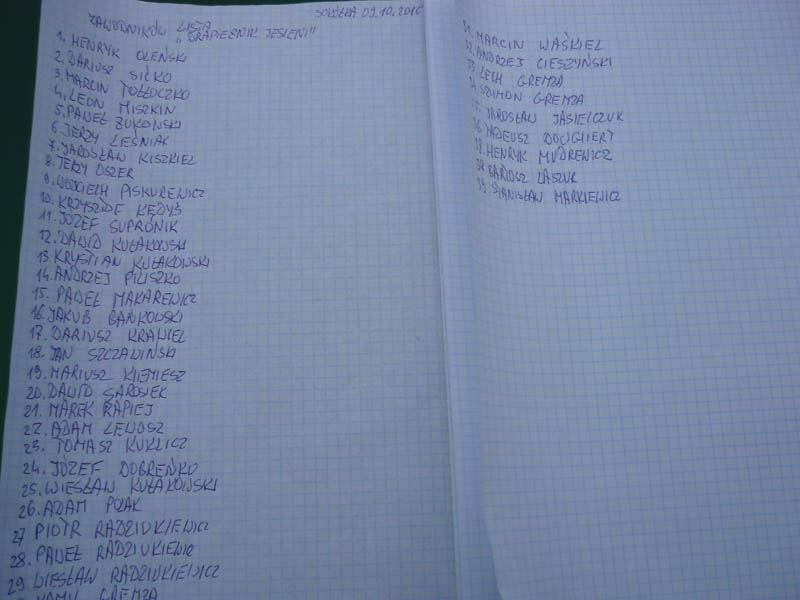 ZAWODNIKÓW LISTA SOKÓŁKA 09.10.2016
"DRAPIEŻNIK JESIENI"
1. HENRYK OLEŃSKI
2. DARIUSZ SIĆKO
3. MARCIN TOŁŁOCZKO
4. LEON MISZKIN
5. PAWEŁ ŻUKOWSKI
6. JERZY LEŚNIAK
7. JAROSŁAW KISZKIEL
8. JERZY OSZER
9. WOJCIECH PISKUREWICZ
10. KRZYSZTOF KĘDYŚ
11. JÓZEF SUPRONIK
12. DAWID KUŁAKOWSKI
13. KRYSTIAN KUŁAKOWSKI
14. ANDRZEJ PILISZKO
15. PAWEŁ MAKAREWICZ
16. JAKUB BAŃKOWSKI
17. DARIUSZ KRAWIEL
18. JAN SZCZAWIŃSKI
19. MARIUSZ KIEMIESZ
20. DAWID SAROSIEK
21. MAREK RAPIEJ
22. ADAM LEWOSZ
23. TOMASZ KUKLICZ
24. JÓZEF DOBREŃKO
25. WIESŁAW KUŁAKOWSKI
26. ADAM POLAK
27 PIOTR RADZIUKIEWICZ
28. PAWEŁ RADZIUKIEWICZ
29. WIESŁAW RADZIUKIEWICZ
KAMIL GREMZA
31. MARCIN WAŚKIEL
32. ANDRZEJ CIESZYŃSKI
33. LECH GREMZA
34. SZYMON GREMZA
35. JAROSŁAW JASIELCZUK
36 TADEUSZ DOWGIERT
37. HENRYK MUDREWICZ
38 BARTOSZ ŁASZUK
39. STANISŁAW MARKIEWICZ